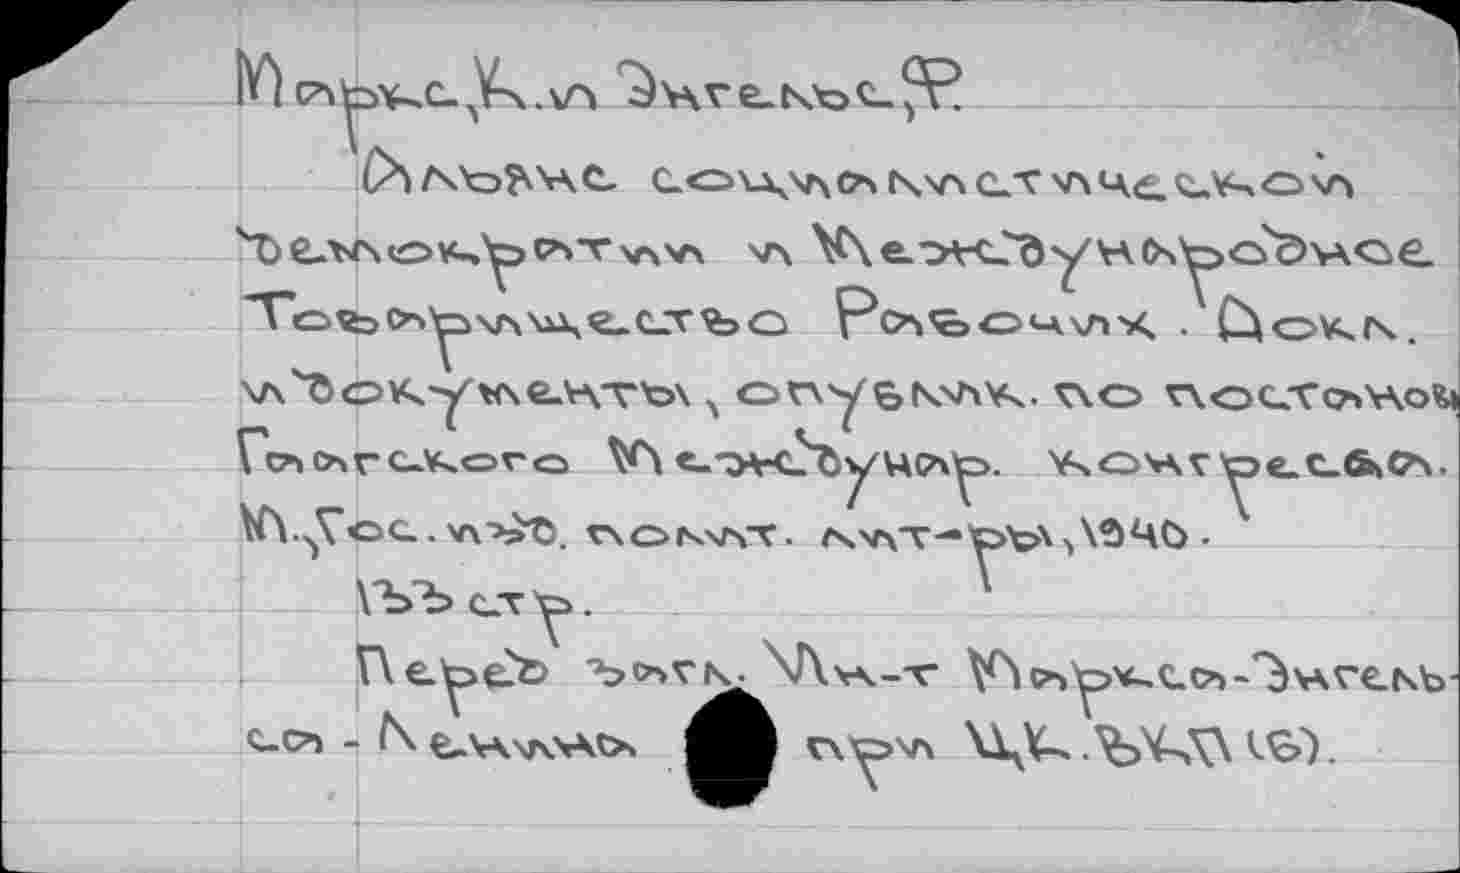 Маркс,К. и Энгельс,Ф.
Альянс социалистической
демократии и Международное
Товарищество Рабочих. Докл.
и документы, опублик. по постанов
Гаагского Международ. конгресса.
М.,Гос. изд. полит. лит-ры,1940.
133 стр.
Перед загл. Ин-т Маркса-Энгель-
са - Ленина при ЦК.ВКП(б).